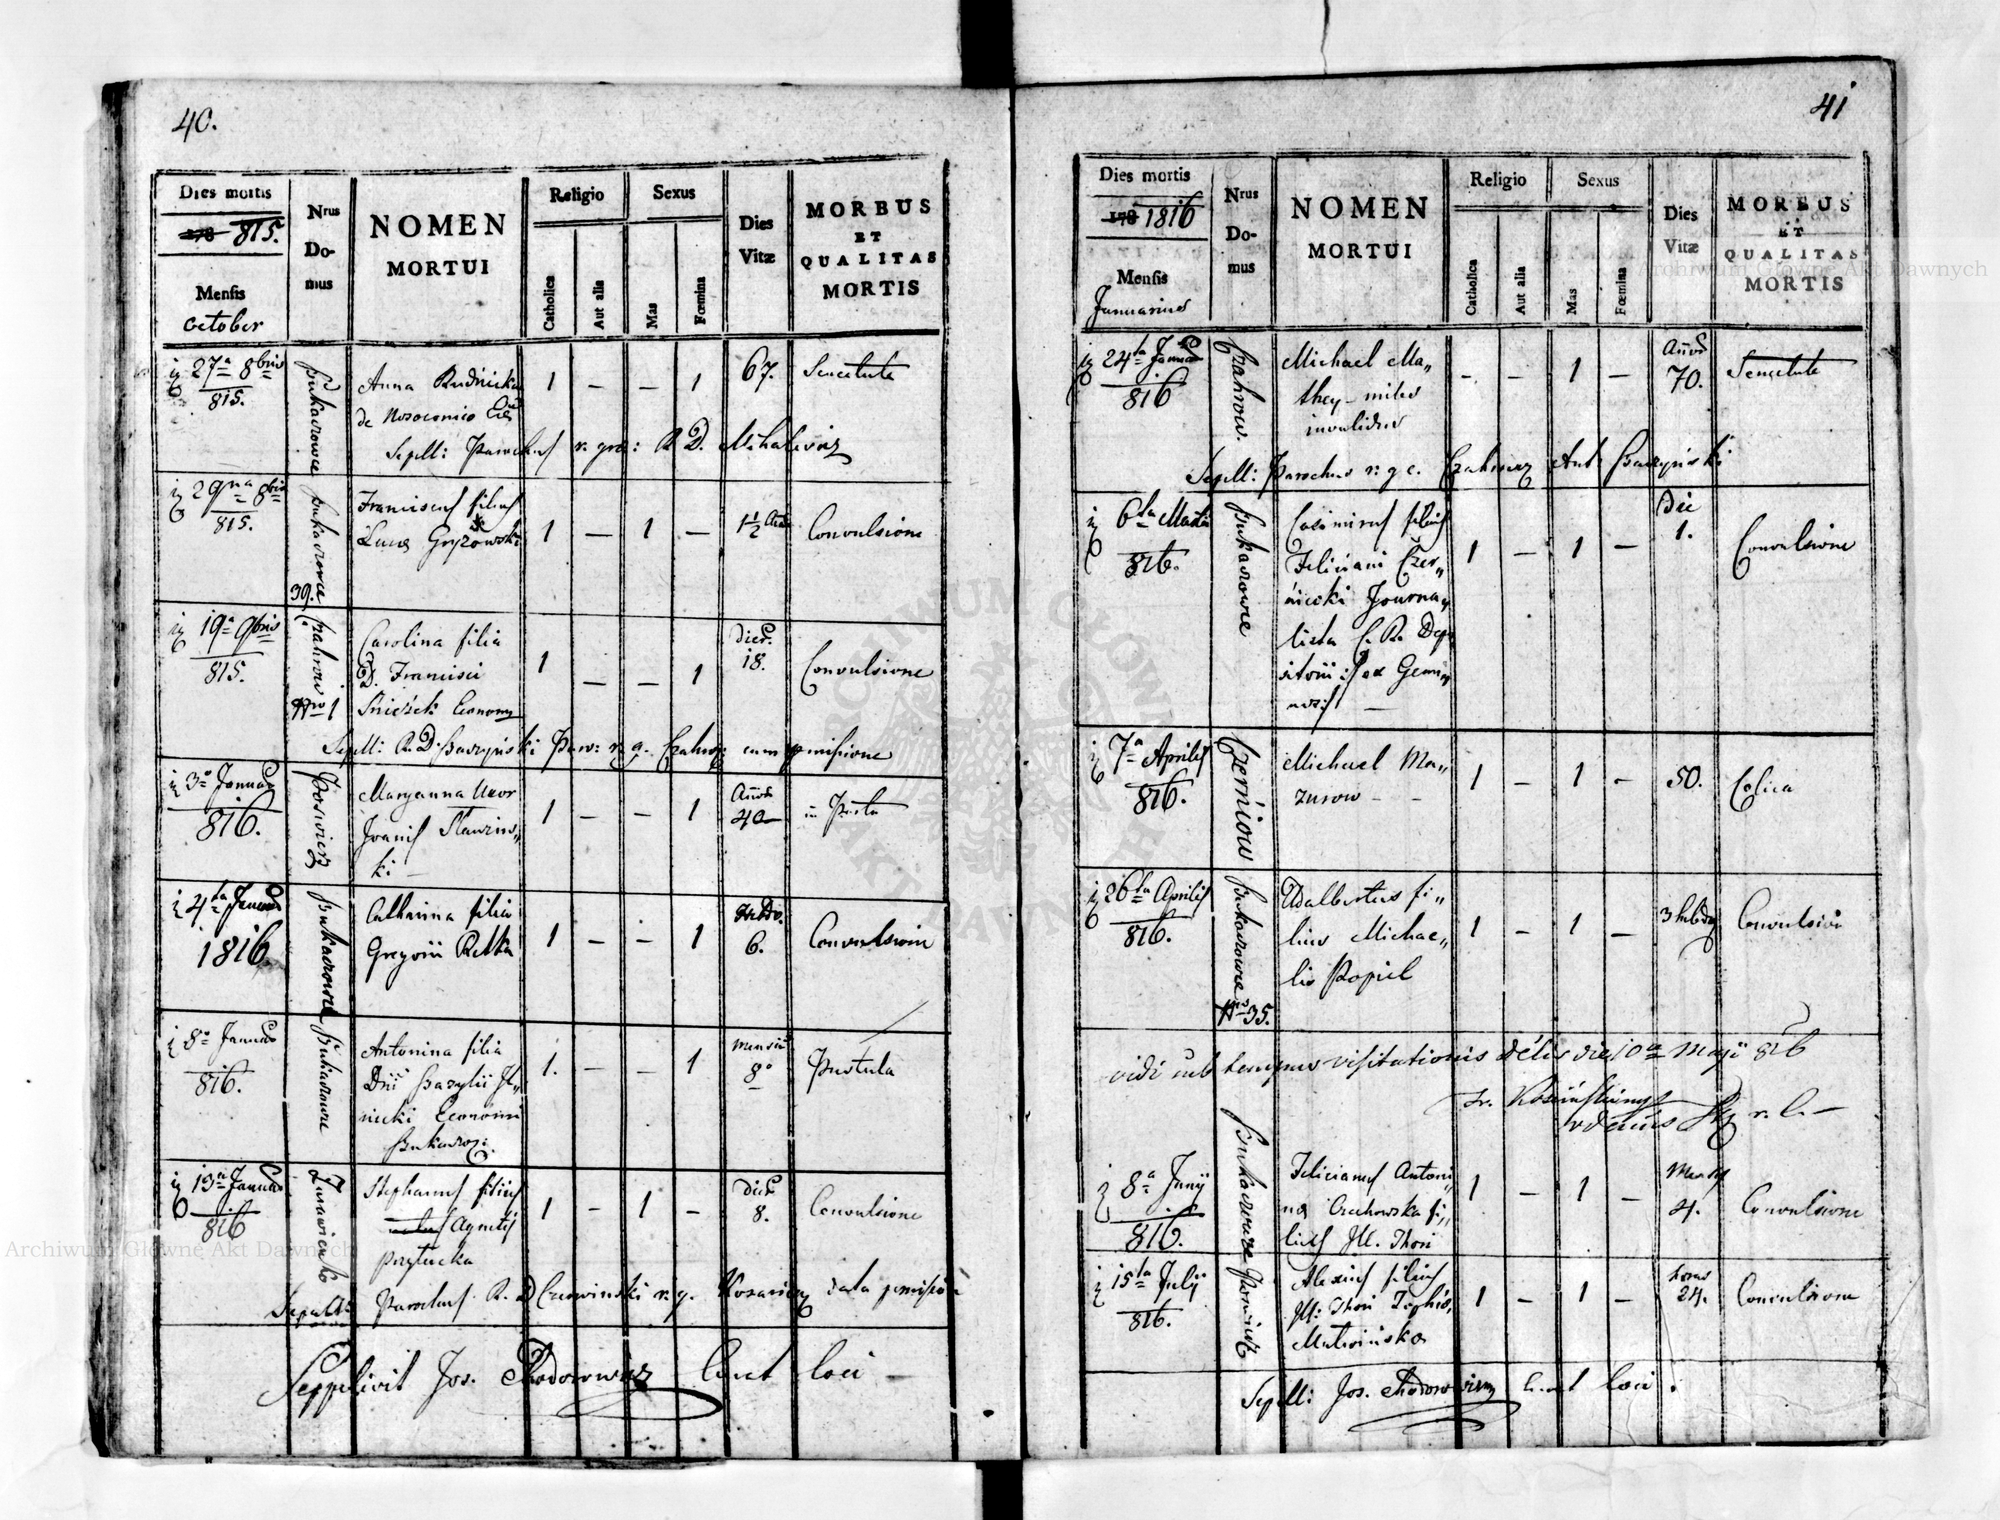 40.
Dies mortis
178 815.
Mensis
October
Nrus
Do-
mus
NOMEN
MORTUI
Religio
Catholica
Aut alia
Sexus
Mas
Fœmina
Dies
Vitæ
MORBUS
ET
QUALITAS
MORTIS
27a 8bris
815.
Bukaczowce
Anna Rudnicka
de Nosocomio
1 — — 1
67.
Senectute
Sepell: Parochus r. gra: R. D. Mihalewicz
29na 8bris
815.
Bukaczowce
39.
Franciscus filius
Lucæ Gryzowski
1 — 1 —
1 1/2
Convulsione
19a 9bris
815.
Czahrow
Nro 1
Carolina filia
D. Francisci
Econom
1 — — 1
Dier.
18.
Convulsione
Sepell: R. D. Baczynski Par: r. g. cum pmissione
3a Januar
816.
Maryanna Uxor
Joanis Slawins„
ki —
1 — — 1
Anor
40
Pusta
4ta Januar
1816
Bukaczowce
Catharina filia
Gregorii Retka
1 — — 1
Hebdo.
6.
Convulsion
8a Januar
816.
Bukaczowce
Antonina filia
Dni Bazylii Il„
nicki Economi
Bukaczo:
1. — — 1
mensiu
8
Pustula
13a Januar
816
Zurawienko
Stephanus filius
Agnetis
Przytucka
1 — 1 —
Dier
8.
Convulsione
Parochus R. D. r. g. data pmissio
Seppelivit Jos. Thodorowicz Curat loci —
41
Dies mortis
178 1816
Mensis
Januarius
Nrus
Do-
mus
NOMEN
MORTUI
Religio
Catholica
Aut alia
Sexus
Mas
Fœmina
Dies
Vitæ
MORBUS
ET
QUALITAS
MORTIS
24ta Januar
816
Czahrow.
Michael Ma„
they - miles
invalidus
- - 1 —
Anor
70.
Senectute
Sepell: Parochus r: g c. Ant: Baczynski
6ta Martii
816.
Bukaczowce
Casimirus filius
Feliciani Czer„
nicki Journa„
lista C. R. Dep
sitorii: ex Gemi„
nosis —
1 — 1 —
Die
1.
Convulsione
7a Aprilis
816.
Czerniow
Michael Ma„
zurow - -
1 - 1 -
50.
Colica
26ta Aprilis
816.
Bukaczowce
Nro 35.
Adalbertus fi„
lius Michae„
lis Popiel
1 - 1 —
3 hebdo
Convulsio
vidi sub tempus visitationis Dlis die 10a Maji 816
8a Junij
816.
Bukaczowce
Felicianus Antoni„
na Orchowska fi„
lius Ill. Thori
1 - 1 -
Mens
4.
Convulsione
15ta Julij
816.
Alexius filius
Ill: Thori
Matwinska
1 - 1 -
horas
24.
Convulsione
Sepell: Jos. Thodorowicz Curat loci.
ARCHIWUM GŁÓWNE AKT DAWNYCH
Archiwum Główne Akt Dawnych
Archiwum Główne Akt Dawnych